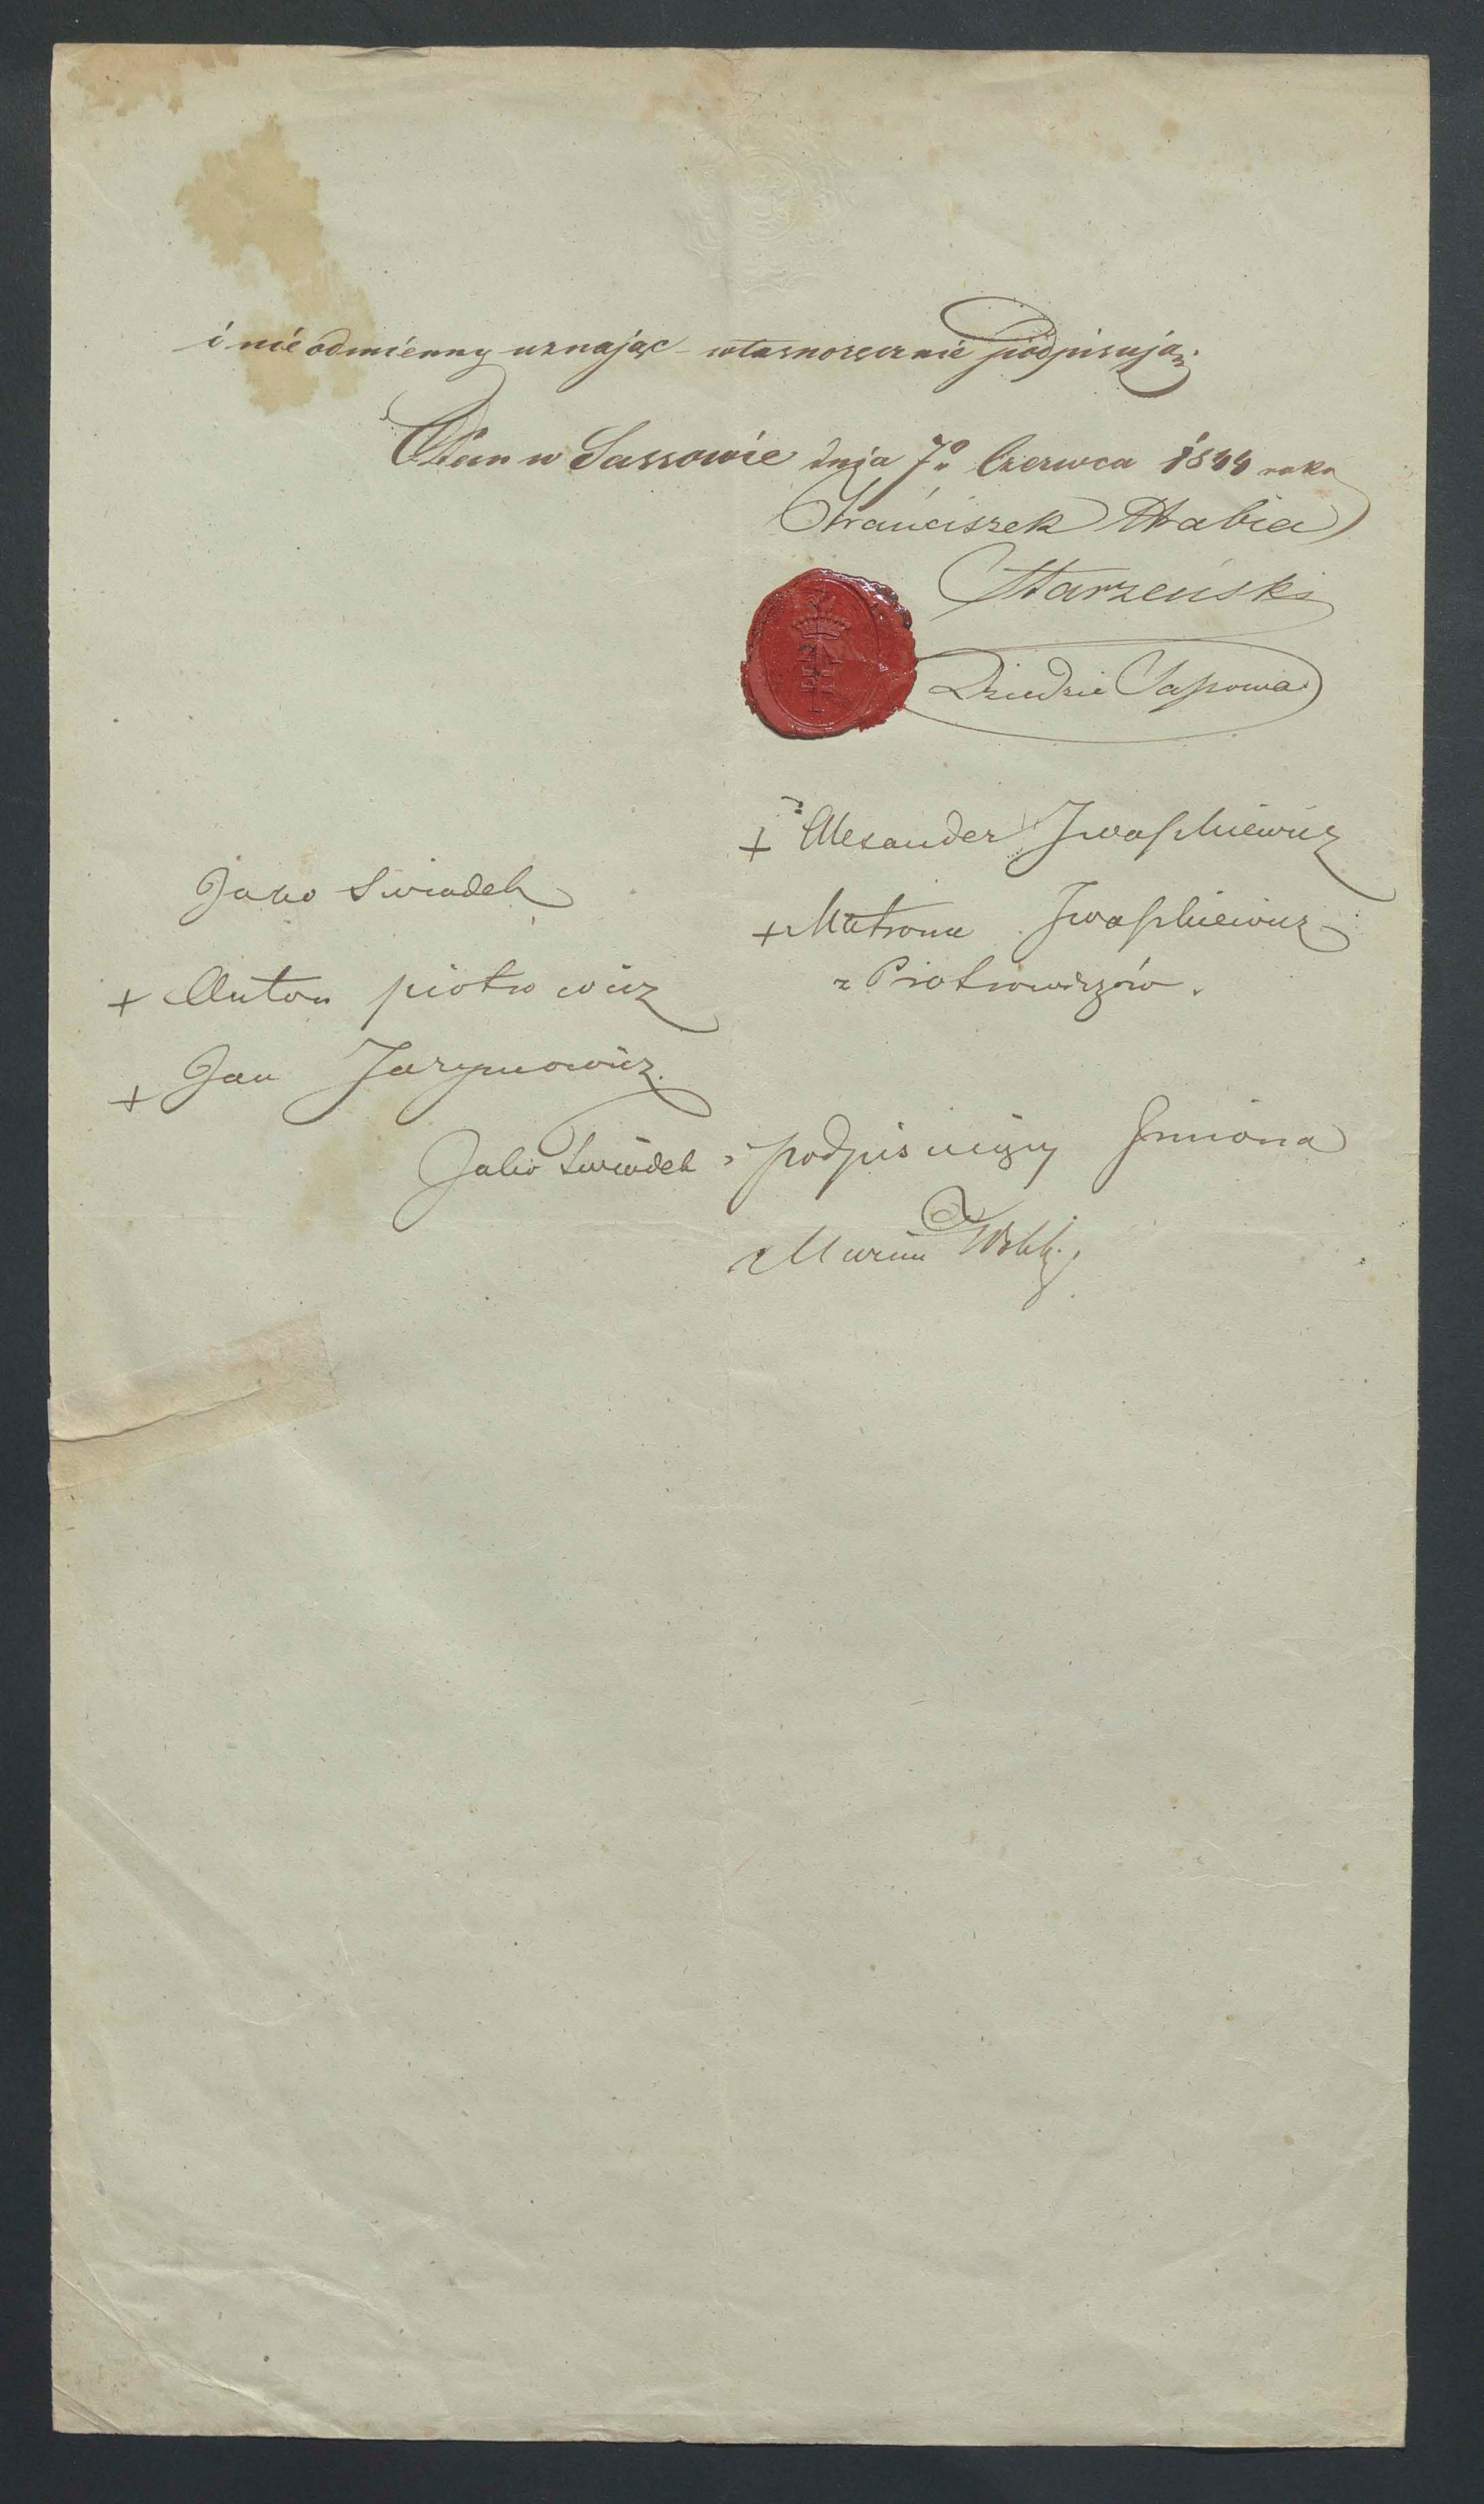 i nieodmienny uznając własnoręcznie podpisują.
Dan w Sassowie dnia 7o Czerwca 1844 roku
Franciszek Hrabia
Starzeński
Dziedzic Sassowa
+ Alexander Iwaszkiewicz
Jako Swiadek
+ Matrona Iwaszkiewicz
z Piotrowiczów.
+ Anton piotrowicz
+ Jan Jarymowicz
Jako Swiadek i podpisuiący Imiona